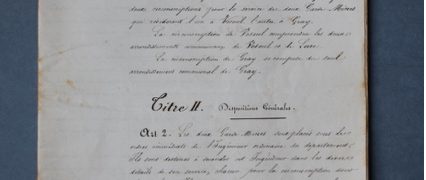 deux circonscriptions pour le service des deux Garde-Mines
qui résideront l'un à Vesoul l'autre à Gray.
La circonscription de Vesoul comprendra les deux
arrondissements communaux de Vesoul et de Lure.
La circonscription de Gray se compose du seul
arrondissement communal de Gray.
Titre II. Dispositions Générales.
Art 2. Les deux Garde-Mines sont placés sous les
ordres immédiats de l'Ingénieur ordinaire du département
Ils sont destinés à seconder cet Ingénieur dans les divers
détails de son service, chacun pour la circonscription